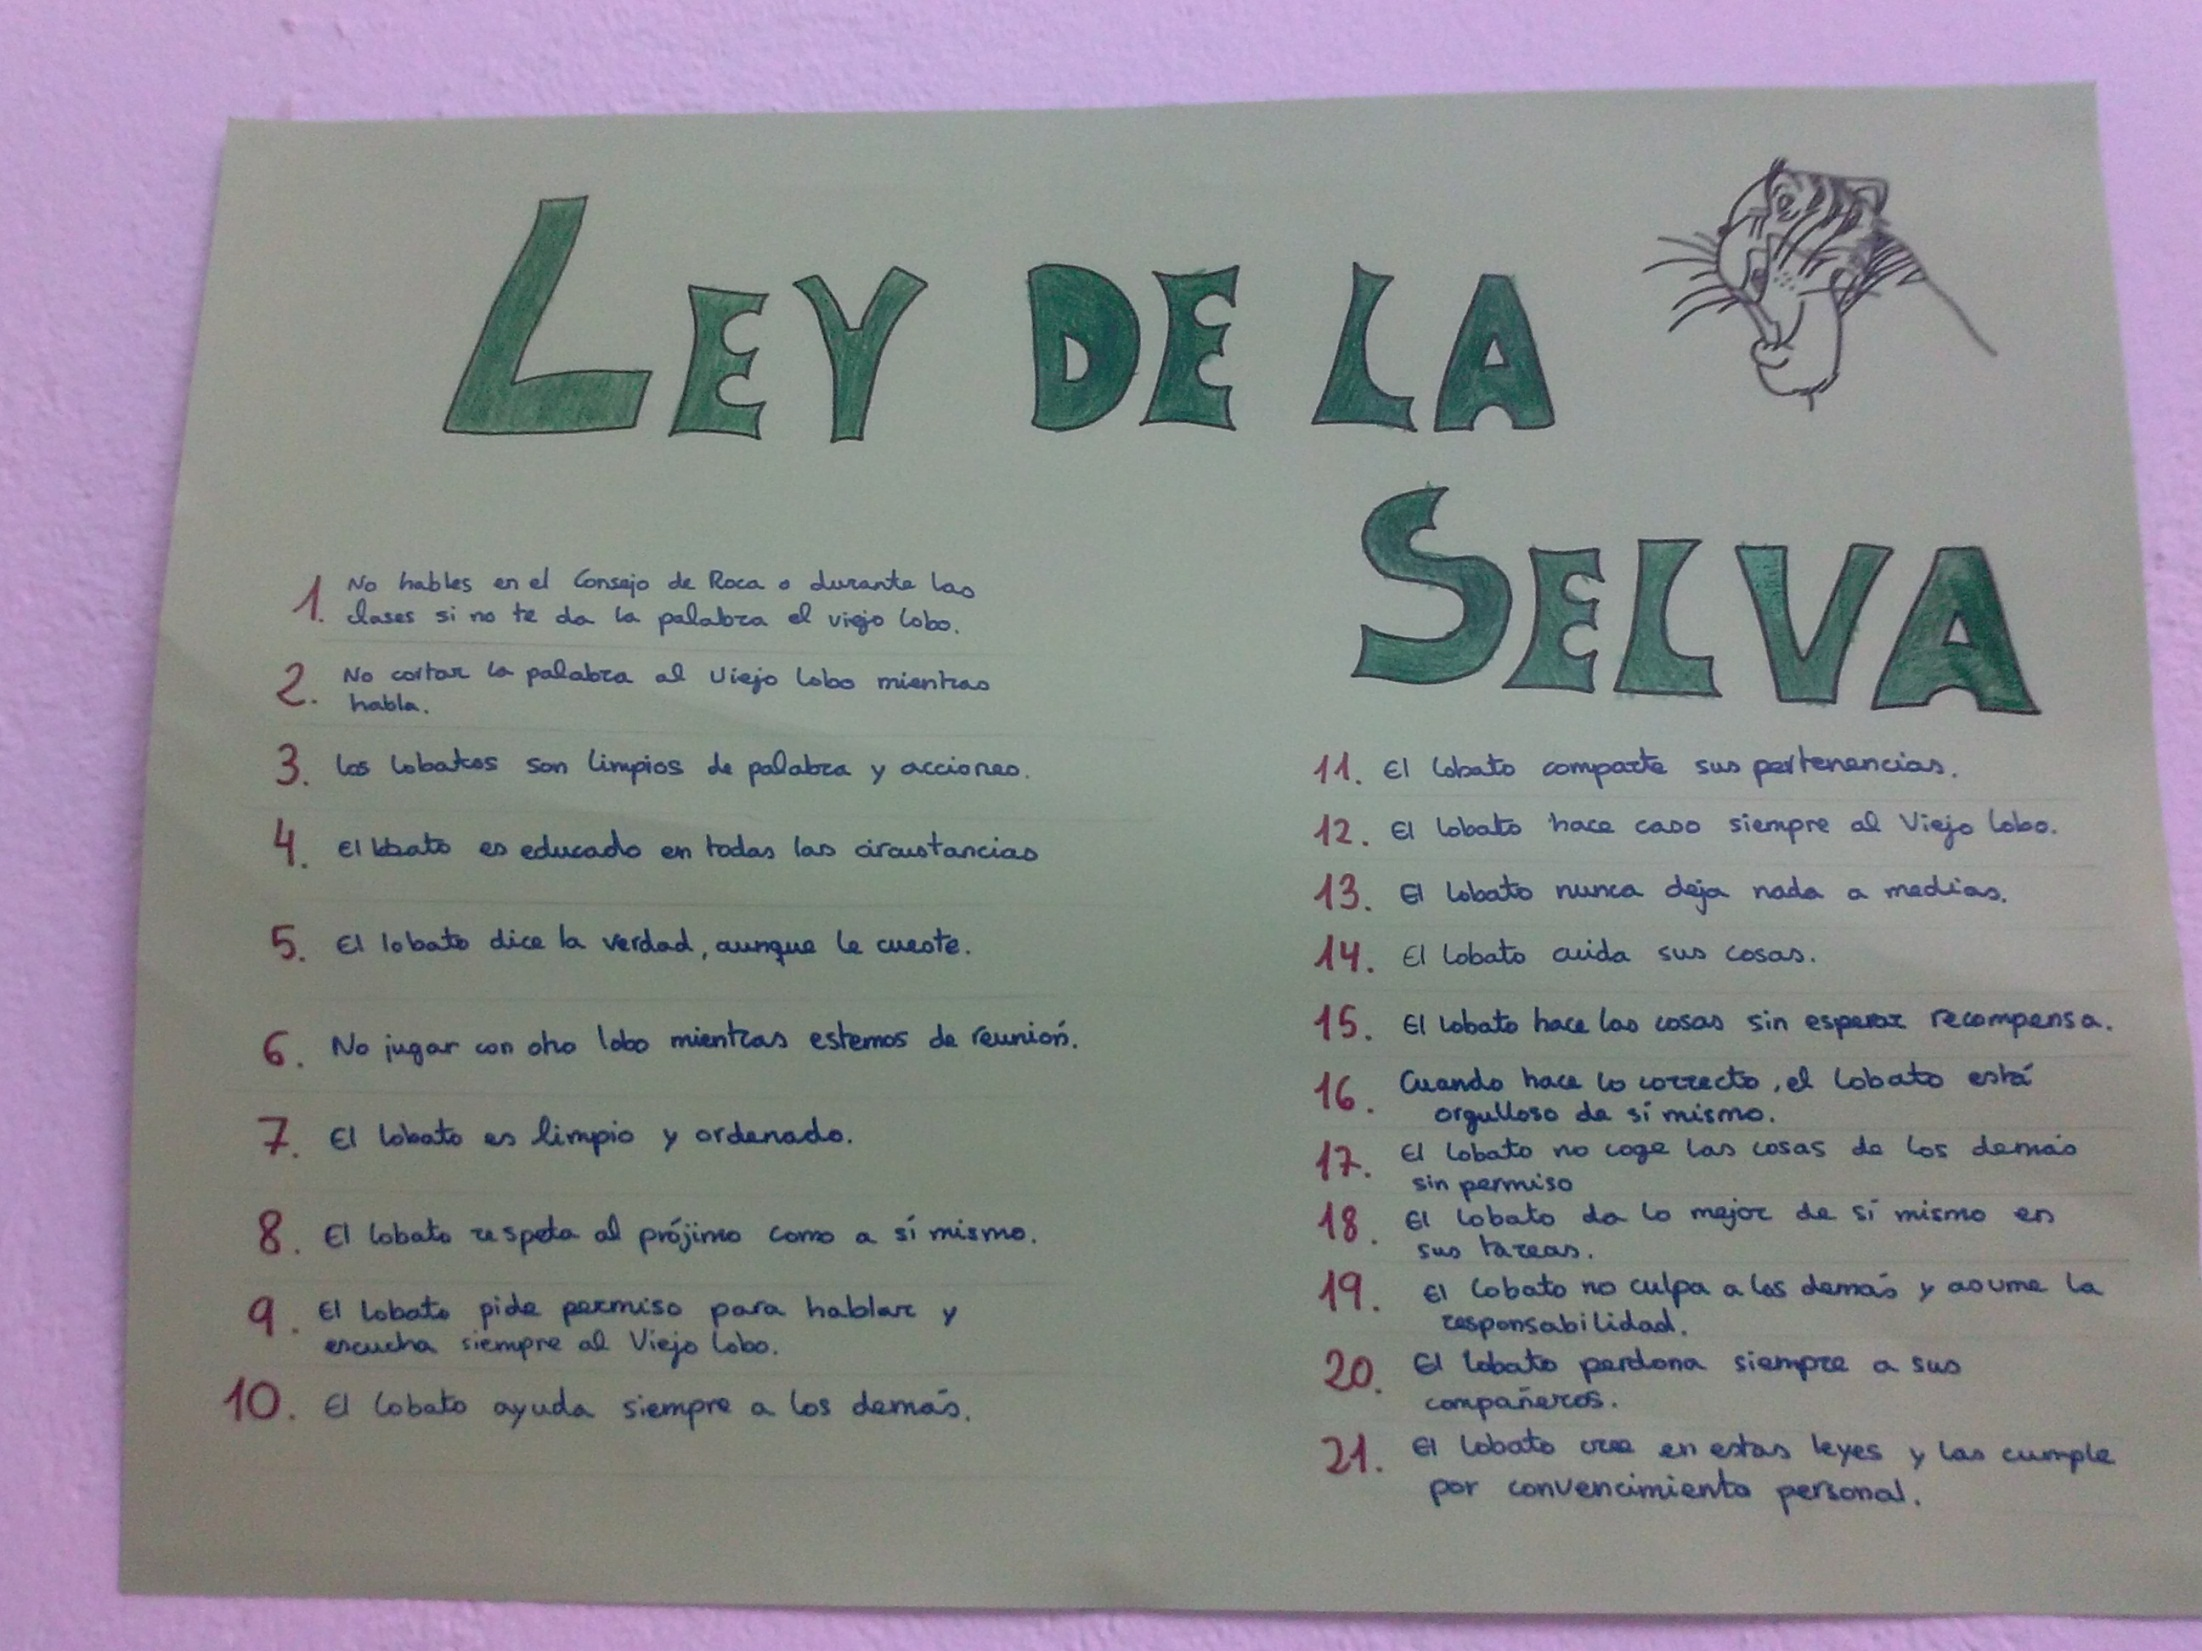 LEY DE LA
SELVA
1. No hables en el Consejo de Roca o durante las
clases si no te da la palabra el viejo lobo.
2. No cortar la palabra al Viejo lobo mientras
habla.
3. Los lobatos son limpios de palabra y acciones.
4. El lobato es educado en todas las circustancias
5. El lobato dice la verdad, aunque le cueste.
6. No jugar con otro lobo mientras estemos de reunión.
7. El lobato es limpio y ordenado.
8. El lobato respeta al prójimo como a sí mismo.
9. El lobato pide permiso para hablar y
escucha siempre al Viejo Lobo.
10. El lobato ayuda siempre a los demás.
11. El lobato comparte sus pertenencias.
12. El lobato hace caso siempre al Viejo lobo.
13. El lobato nunca deja nada a medias.
14. El lobato cuida sus cosas.
15. El lobato hace las cosas sin esperar recompensa.
16. Cuando hace lo correcto, el lobato está
orgulloso de sí mismo.
17. El lobato no coge las cosas de los demás
sin permiso
18. El lobato da lo mejor de sí mismo en
sus tareas.
19. El lobato no culpa a los demás y asume la
responsabilidad.
20. El lobato perdona siempre a sus
compañeros.
21. El lobato cree en estas leyes y las cumple
por convencimiento personal.